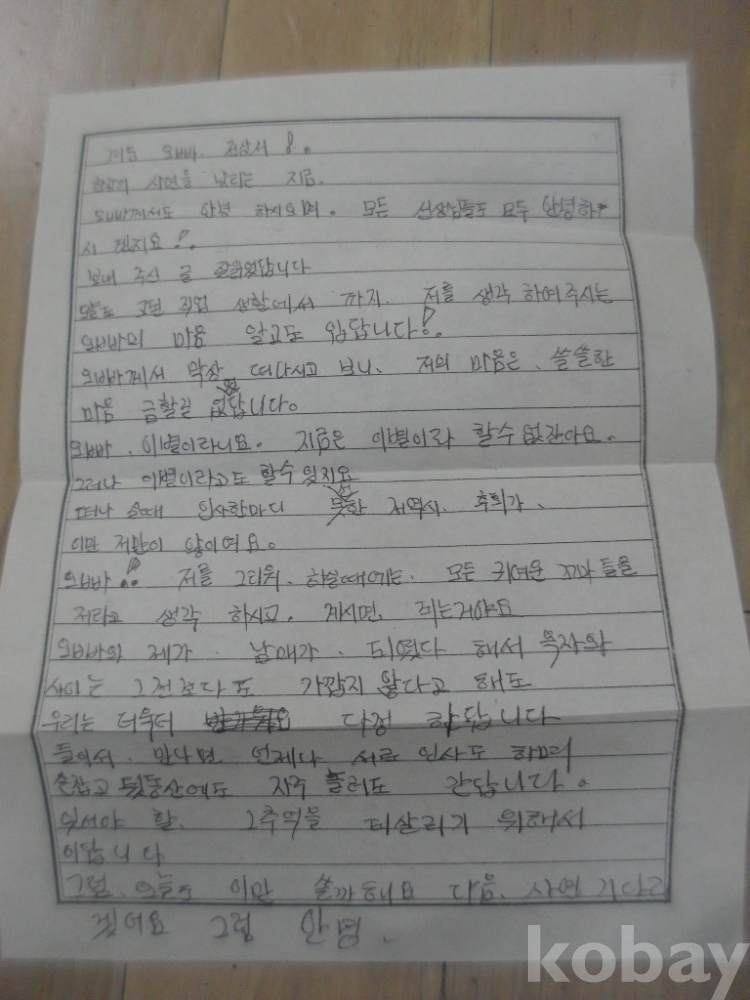 오빠. 전상서!.
사연을 날리는 지금.
오빠께서도 안녕 하시오며. 모든 선생님들도 모두 안녕하
시 겠지요!.
보내 주신 글 답니다
오늘도 직업 생활에서 까지. 저를 생각 하여주시는
오빠의 마음 알고도 답니다!
오빠께서 막상 떠나시고 보니. 저의 마음은. 쓸쓸한
마음 금할길 없답니다.
오빠. 이별이라니요. 지금은 이별이라 할수 없잔아요.
그러나 이별이라고도 할수 잇지요
떠나 실때 인사한마디 못한 저역시. 추회가.
이만 저만이 않이여요.
오빠!! 저를 그리워. 하실때에는. 모든 귀여운 꼬마 들을
저라고 생각 하시고. 계시면. 되는거야요
오빠와 제가. 남매가. 되였다 해서 옥자와
사이는 그전보다도 가깝지 않다고 해도
우리는 더욱더 다정 합답니다
들어서. 만나면 언제나 서로 인사도 하며
손잡고 뒷동산에도 자주 놀러도 간답니다.
잇서야 할. 그추억을 되살리기 위해서
이답니다
그럼. 오늘은 이만 쓸까해요 다음. 사연 기다리
겠어요 그럼 안녕.
kobay